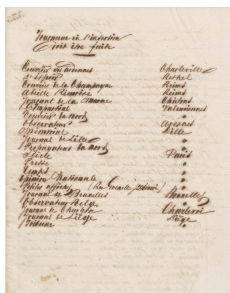 Journaux où l'insertion
doit être faite
Courrier des Ardennes Charleville
L'Espoir Rethel
Courrier de la Champagne Reims
Reims
Journal de la Marne Châlons
L'Impartial Valenciennes
Courrier du Nord "
Observateur Avesnes
Lille
Journal de Lille "
Propagateur du Nord "
Siècle Paris
Presse "
Temps "
Opinion Nationale "
Petites affiches "
Journal de Bruxelles Bruxelles
Observateur Belge "
Journal de Charleroi Charleroi
Journal de Liège Liège
"